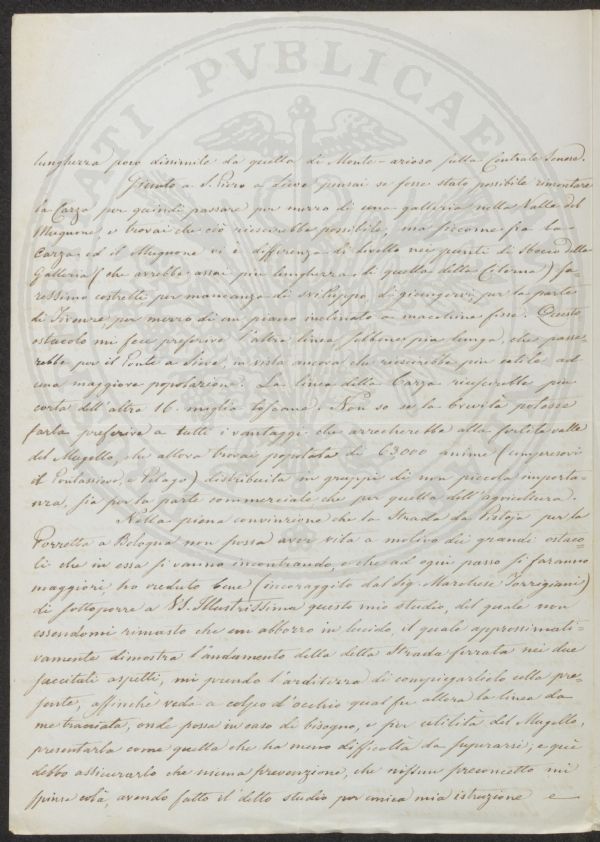 lunghezza poco dissimile da quella di Monte-arioso sulla Centrale Senese.
Giunto a S. Piero a Sieve pensai se fosse stato possibile rimontare
la Carza per quindi passare per mezzo di una galleria nella Valle del
Mugnone e trovai che ciò riescirebbe possibile, ma siccome fra la
Carza ed il Mugnone vi è differenza di livello nei punti di sbocco della
Galleria (che avrebbe assai più lunghezza di quella della Cisterna) sa-
ressimo costretti per mancanza di sviluppo di giungervi per la parte
di Firenze per mezzo di un piano inclinato a macchine fisse. Questo
ostacolo mi fece preferire l'altra linea sebbene più lunga, che passe-
rebbe per il Ponte a Sieve, in vista ancora che riescirebbe più utile ad
una maggiore popolazione. La linea della Carza riescirebbe più
corta dell'altra 16. miglia toscane. Non so se la brevità potesse
farla preferire a tutti i vantaggi che arrecherebbe alla fertile valle
del Mugello, che allora trovai popolata di 63,000 anime (compresovi
il Pontassieve, e Pelago) distribuita in gruppi di non piccola importa-
nza, sia per la parte commerciale che per quella dell'agricoltura.
Nella piena convinzione che la Strada da Pistoja per la
Porretta a Bologna non possa aver vita a motivo dei grandi ostaco-
li che in essa si vanno incontrando, e che ad ogni passo si faranno
maggiori, ho creduto bene (incoraggito dal Sig. Marchese Torrigiani)
di sottoporre a VS. Illustrissima questo mio studio, del quale non
essendomi rimasto che un abbozzo in lucido, il quale approssimati-
vamente dimostra l'andamento della detta Strada ferrata nei due
facilitati aspetti, mi prendo l'arditezza di compiegarlielo colla pre-
sente, affinchè veda a colpo d'occhio qual fu allora la linea da
me tracciata, onde possa in caso di bisogno, e per utilità del Mugello,
presentarla come quella che ha meno difficoltà da superarsi; e quì
debbo assicurarlo che niuna prevenzione, che nissun preconcetto mi
spinse colà, avendo fatto il detto studio per unica mia istruzione e
PVBLICAE